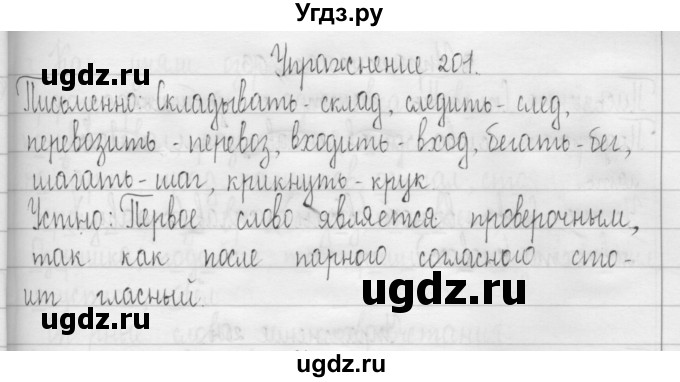 Угдз.ру
Упражнение 201.
ugdz.ru
Письменно: Складывать - склад, следить - след,
ugdz.ru
перевозить - перевоз, входить - вход, бегать - бег,
шагать - шаг, крикнуть - крук.
Устно: Первое слово является проверочным,
так как после парного согласного сто-
ugdz.ru
ит гласный.
ugdz.ru
ugdz.ru